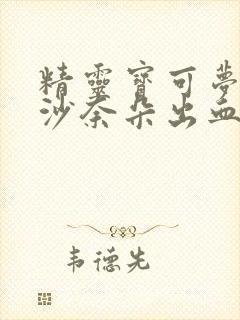 精靈寶可夢
沙奈朵出血
韦德先